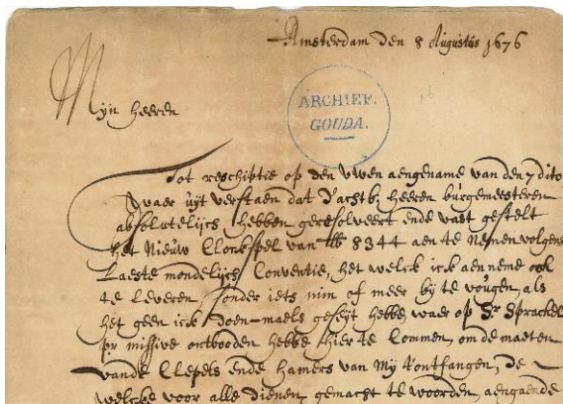 Amsterdam den 8 Augustus 1676
Mijn heeren
ARCHIEF.
GOUDA.
Tot reschiptie op den uwen aengename van den 7 dito
waer uijt verstaen dat d'achtb; heeren burgemeesteren
absolutelijch hebben geresolveert ende vast gestelt
het Nieuw Clockspel van 8344 aen te Nemen volgens
Laeste mondelijch Conventie, het welck ick aenneme ook
te leveren sonder iets min of meer bij te vougen, als
het geen ick doen-maels geseijt hebbe waer op Sr Sprackel
pr missive ontbooden hebbe hier te Commen, om de maeten
vande Clepels ende hamers van Mij t'ontfangen, de
welcke voor alle dienen gemacht te woorden, aengaende